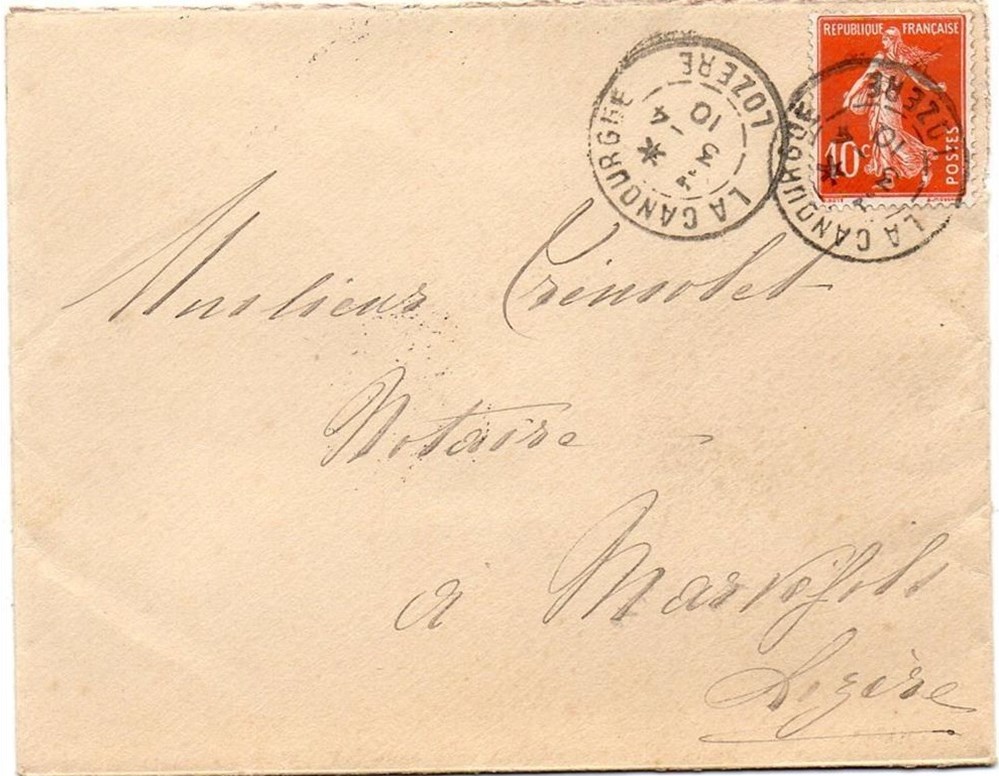 REPUBLIQUE FRANÇAISE
10c
POSTES
LA CANOURGUE
3 -4
10
LOZERE
LA CANOURGUE
3 -4
10
LOZERE
Monsieur Crinsolet
Notaire
à Marvéjols
Lozère